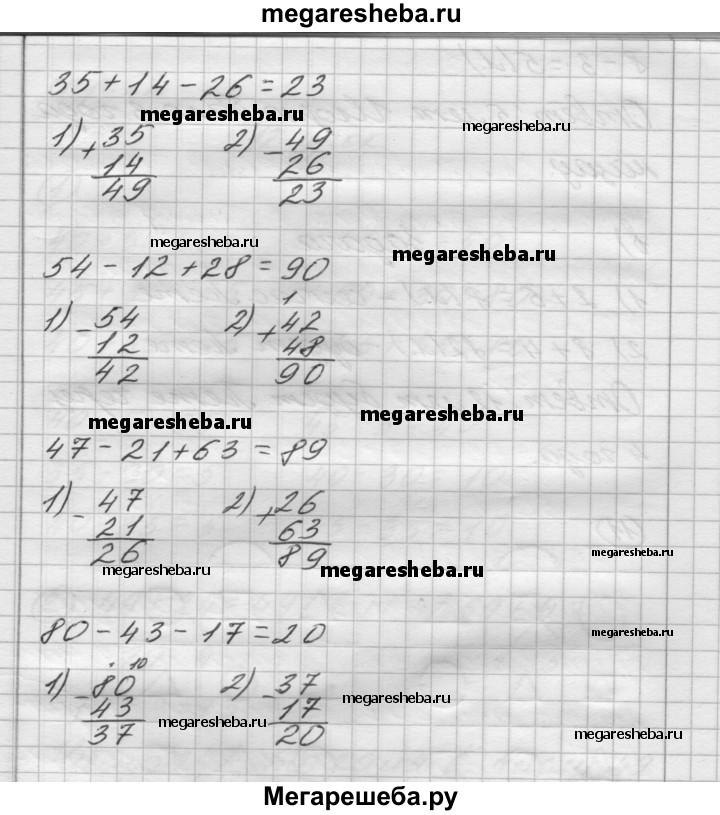 megaresheba.ru
35+14-26=23
megaresheba.ru
megaresheba.ru
1) +35 2) -49
14 26
49 23
megaresheba.ru
megaresheba.ru
54-12+28=90
1
1) -54 2) +42
12 48
42 90
megaresheba.ru
megaresheba.ru
47-21+63=89
1) -47 2) +26
21 63
26 89
megaresheba.ru
megaresheba.ru
megaresheba.ru
80-43-17=20
megaresheba.ru
. 10
1) -80 2) -37
43 17
37 20
megaresheba.ru
megaresheba.ru
megaresheba.ru
Мегарешеба.ру